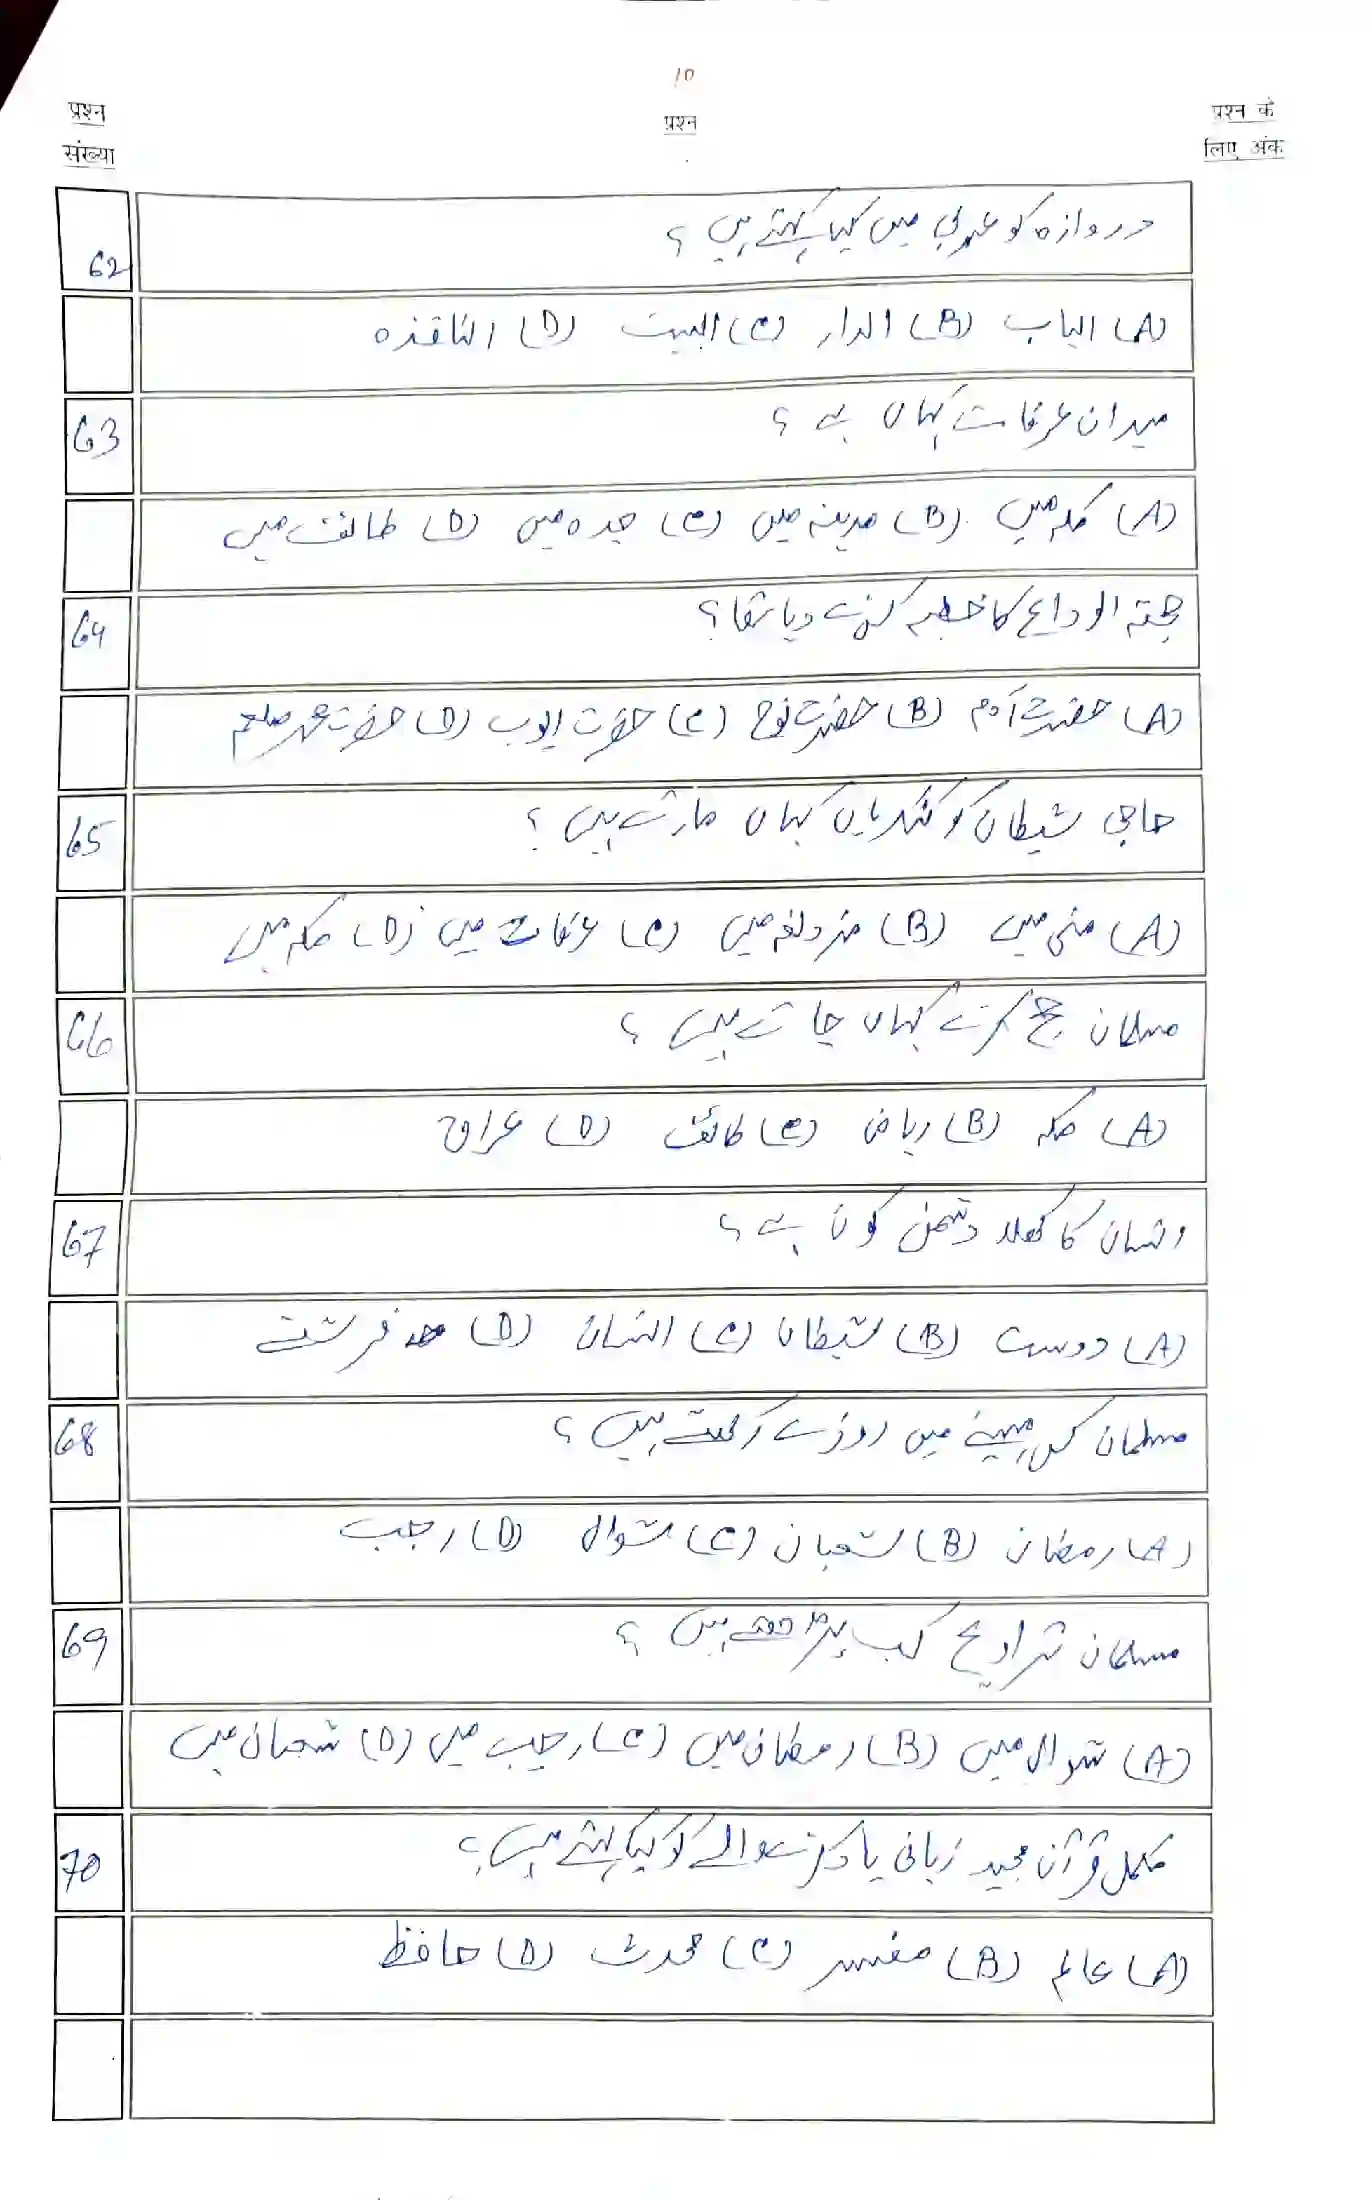 10
प्रश्न संख्या
प्रश्न
प्रश्न के लिए अंक
62 دروازہ کو عربی میں کیا کہتے ہیں ؟
(A) الباب (B) الدار (C) البیت (D) النافذہ
63 میدان عرفات کہاں ہے ؟
(A) مکہ میں (B) مدینہ میں (C) جدہ میں (D) طائف میں
64 حجتہ الوداع کا خطبہ کسنے دیا تھا ؟
(A) حضرت آدم (B) حضرت نوح (C) حضرت ایوب (D) حضرت محمد صلعم
65 حاجی شیطان کو کنکریاں کہاں مارتے ہیں ؟
(A) منیٰ میں (B) مزدلفہ میں (C) عرفات میں (D) مکہ میں
66 مسلمان حج کرنے کہاں جاتے ہیں ؟
(A) مکہ (B) ریاض (C) طائف (D) عراق
67 انسان کا کھلا دشمن کون ہے ؟
(A) دوست (B) شیطان (C) انسان (D) فرشتے
68 مسلمان کس مہینے میں روزے رکھتے ہیں ؟
(A) رمضان (B) شعبان (C) شوال (D) رجب
69 مسلمان تراویح کب پڑھتے ہیں ؟
(A) شوال میں (B) رمضان میں (C) رجب میں (D) شعبان میں
70 مکمل قرآن مجید زبانی یاد کرنے والے کو کیا کہتے ہیں ؟
(A) عالم (B) مفسر (C) محدث (D) حافظ